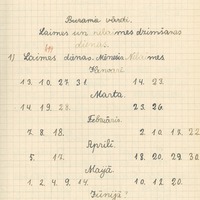 Burama vārdi.
Laimes un nelaimes dzimšanas
dienas.
1) Laimes dānas. Mēnesis. Nelaimes
Janvarī
13. 10. 27. 31. 14. 27.
Marta.
14. 19. 28. 23. 26.
Februāris.
7. 8. 18. 2. 10. 17. 22
Aprīlī.
5. 18. 20. 29. 30
Maijā
1. 2. 4. 9. 14. 10. 12. 20.
Jūnijā?